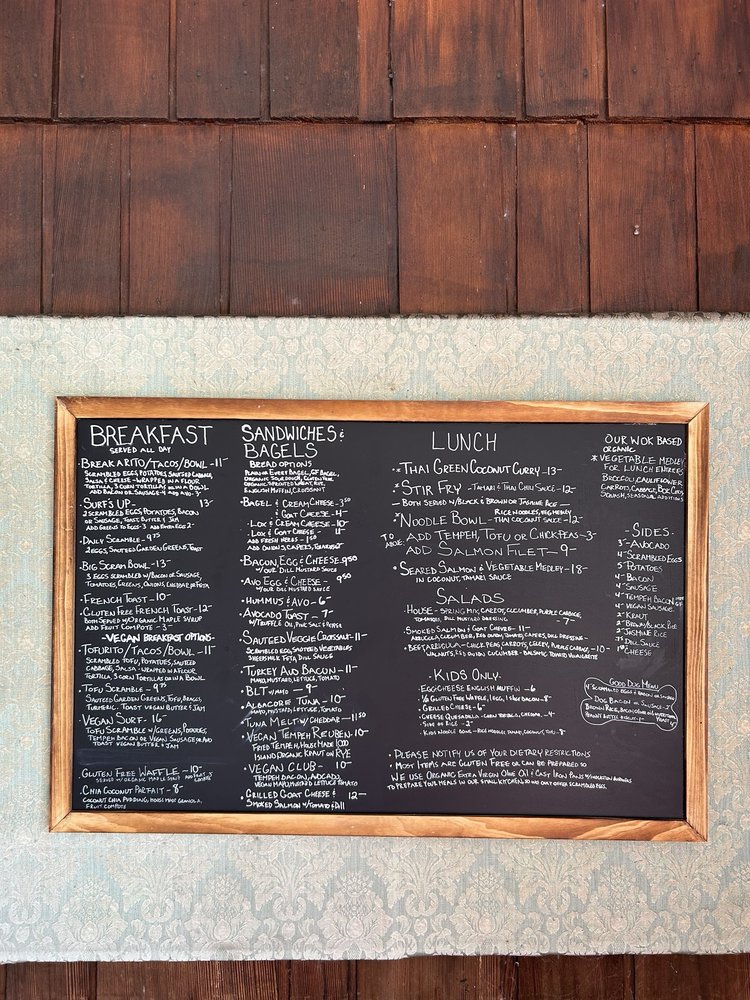 BREAKFAST
SERVED ALL DAY
·BREAKARITO/TACOS/BOWL -11-
SCRAMBLED EGGS, POTATOES, SAUTEED CABBAGE,
SALSA & CHEESE - WRAPPED IN A FLOUR
TORTILLA, 3 CORN TORTILLAS OR IN A BOWL
ADD BACON OR SAUSAGE-4 ADD AVO-3
·SURF'S UP- 13-
2 SCRAMBLED EGGS, POTATOES, BACON
OR SAUSAGE, TOAST BUTTER & JAM
ADD GREENS TO EGGS -3 ADD EXTRA EGG 2-
·DAILY SCRAMBLE - 9.75
2 EGGS, SAUTEED GARDEN GREENS, TOAST
·BIG SCRAM BOWL -13-
3 EGGS SCRAMBLED W/BACON OR SAUSAGE,
TOMATOES, GREENS, ONIONS, CHEDDAR OR FETA
·FRENCH TOAST -10-
·GLUTEN FREE FRENCH TOAST -12-
BOTH SERVED W/ORGANIC MAPLE SYRUP
ADD FRUIT COMPOTE -3-
-VEGAN BREAKFAST OPTIONS
TOFURITO/TACOS/BOWL -11-
SCRAMBLED TOFU, POTATOES, SAUTEED
CABBAGE, SALSA - WRAPPED IN A FLOUR
TORTILLA, 3 CORN TORTILLAS OR IN A BOWL
·TOFU SCRAMBLE - 9.75
SAUTEED GARDEN GREENS, TOFU, BRAGGS
TURMERIC. TOAST VEGAN BUTTER & JAM
·VEGAN SURF- 16-
TOFU SCRAMBLE W/GREENS, POTATOES,
TEMPEH BACON OR VEGAN SAUSAGE OR AVO
TOAST VEGAN BUTTER & JAM
·GLUTEN FREE WAFFLE -10-
SERVED W/ORGANIC MAPLE SYRUP
·CHIA COCONUT PARFAIT - 8-
COCONUT CHIA PUDDING, HOUSE MADE GRANOLA,
FRUIT COMPOTE
SANDWICHES &
BAGELS
BREAD OPTIONS
PLAIN OR EVERY BAGEL, GF BAGEL,
ORGANIC SOURDOUGH, GLUTEN FREE
ORGANIC SPROUTED WHEAT, RYE,
ENGLISH MUFFIN, CROISSANT
·BAGEL & CREAM CHEESE -3.50
& GOAT CHEESE -4-
·LOX & CREAM CHEESE -10-
·LOX & GOAT CHEESE - 11
ADD FRESH HERBS -1.50
ADD ONION 3, CAPERS, TOMATOES
·BACON, EGG & CHEESE - 9.50
W/OUR DILL MUSTARD SAUCE
·AVO EGG & CHEESE - 9.50
W/OUR DILL MUSTARD SAUCE
·HUMMUS & AVO - 6-
·AVOCADO TOAST - 7-
W/TRUFFLE OIL, PINK SALT & PEPPER
·SAUTEED VEGGIE CROISSANT -11-
SCRAMBLED EGG, SAUTEED VEGETABLES
SHEEPSMILK FETA, DILL SAUCE
·TURKEY AND BACON - 11-
MAYO, MUSTARD, LETTUCE, TOMATO
·BLT W/MAYO - 9-
·ALBACORE TUNA - 10-
MAYO, MUSTARD, LETTUCE, TOMATO
·TUNA MELT W/CHEDDAR - 11.50
·VEGAN TEMPEH REUBEN - 10-
FRIED TEMPEH, HOUSE MADE 1000
ISLAND ORGANIC KRAUT ON RYE
·VEGAN CLUB - 10-
TEMPEH BACON, AVOCADO,
VEGAN MAYO, MUSTARD LETTUCE TOMATO
·GRILLED GOAT CHEESE & 12-
SMOKED SALMON W/TOMATO & DILL
LUNCH
·*THAI GREEN COCONUT CURRY -13-
·*STIR FRY - TAMARI & THAI CHILI SAUCE -12-
- BOTH SERVED W/BLACK & BROWN OR JASMINE RICE -
*NOODLE BOWL - RICE NOODLES, VEG MEDLEY
THAI COCONUT SAUCE -12-
TO ABOVE: ADD TEMPEH, TOFU OR CHICKPEAS -3-
ADD SALMON FILET - 9-
·SEARED SALMON & VEGETABLE MEDLEY -18-
IN COCONUT, TAMARI SAUCE
SALADS
HOUSE - SPRING MIX, CARROT, CUCUMBER, PURPLE CABBAGE,
TOMATOES, DILL MUSTARD DRESSING - 7-
·SMOKED SALMON & GOAT CHEVRE -11-
ARUGULA, CUCUMBER, RED ONION, TOMATO, CAPERS, DILL DRESSING
·BEETARUGULA - CHICKPEAS, CARROTS, CELERY, PURPLE CABBAGE -10-
WALNUTS, RED ONION CUCUMBER - BALSAMIC TOMATO VINAIGRETTE
·KIDS ONLY·
·EGG CHEESE ENGLISH MUFFIN - 6
·1/2 GLUTEN FREE WAFFLE, 1 EGG, 1 VEG BACON - 8-
·GRILLED CHEESE - 6-
·CHEESE QUESADILLA - CORN TORTILLA, CHEDDAR, - 4-
·SIDE OF RICE - 2-
·KIDS NOODLE BOWL - RICE NOODLES, TAMARI, COCONUT, TOFU - 8-
·PLEASE NOTIFY US OF YOUR DIETARY RESTRICTIONS
·MOST ITEMS ARE GLUTEN FREE OR CAN BE PREPARED SO
WE USE ORGANIC EXTRA VIRGIN OLIVE OIL & CAST IRON PANS
TO PREPARE YOUR MEALS IN OUR SMALL KITCHEN, SO WE ONLY OFFER SCRAMBLED EGGS.
OUR WOK BASED
ORGANIC
*VEGETABLE MEDLEY
FOR LUNCH ENTREES
BROCCOLI, CAULIFLOWER
CARROTS, CABBAGE, BOK CHOY
SQUASH, SEASONAL ADDITIONS
-SIDES-
3- AVOCADO
4- SCRAMBLED EGGS
5- POTATOES
4- BACON
4- SAUSAGE
4- TEMPEH BACON
4- VEGAN SAUSAGE
2- KRAUT
2- BROWN/BLACK RICE
2- JASMINE RICE
DILL SAUCE
CHEESE
GOOD DOG MENU
SCRAMBLED EGGS & BACON OR SAUSAGE
·DOG BACON OR SAUSAGE - 2-